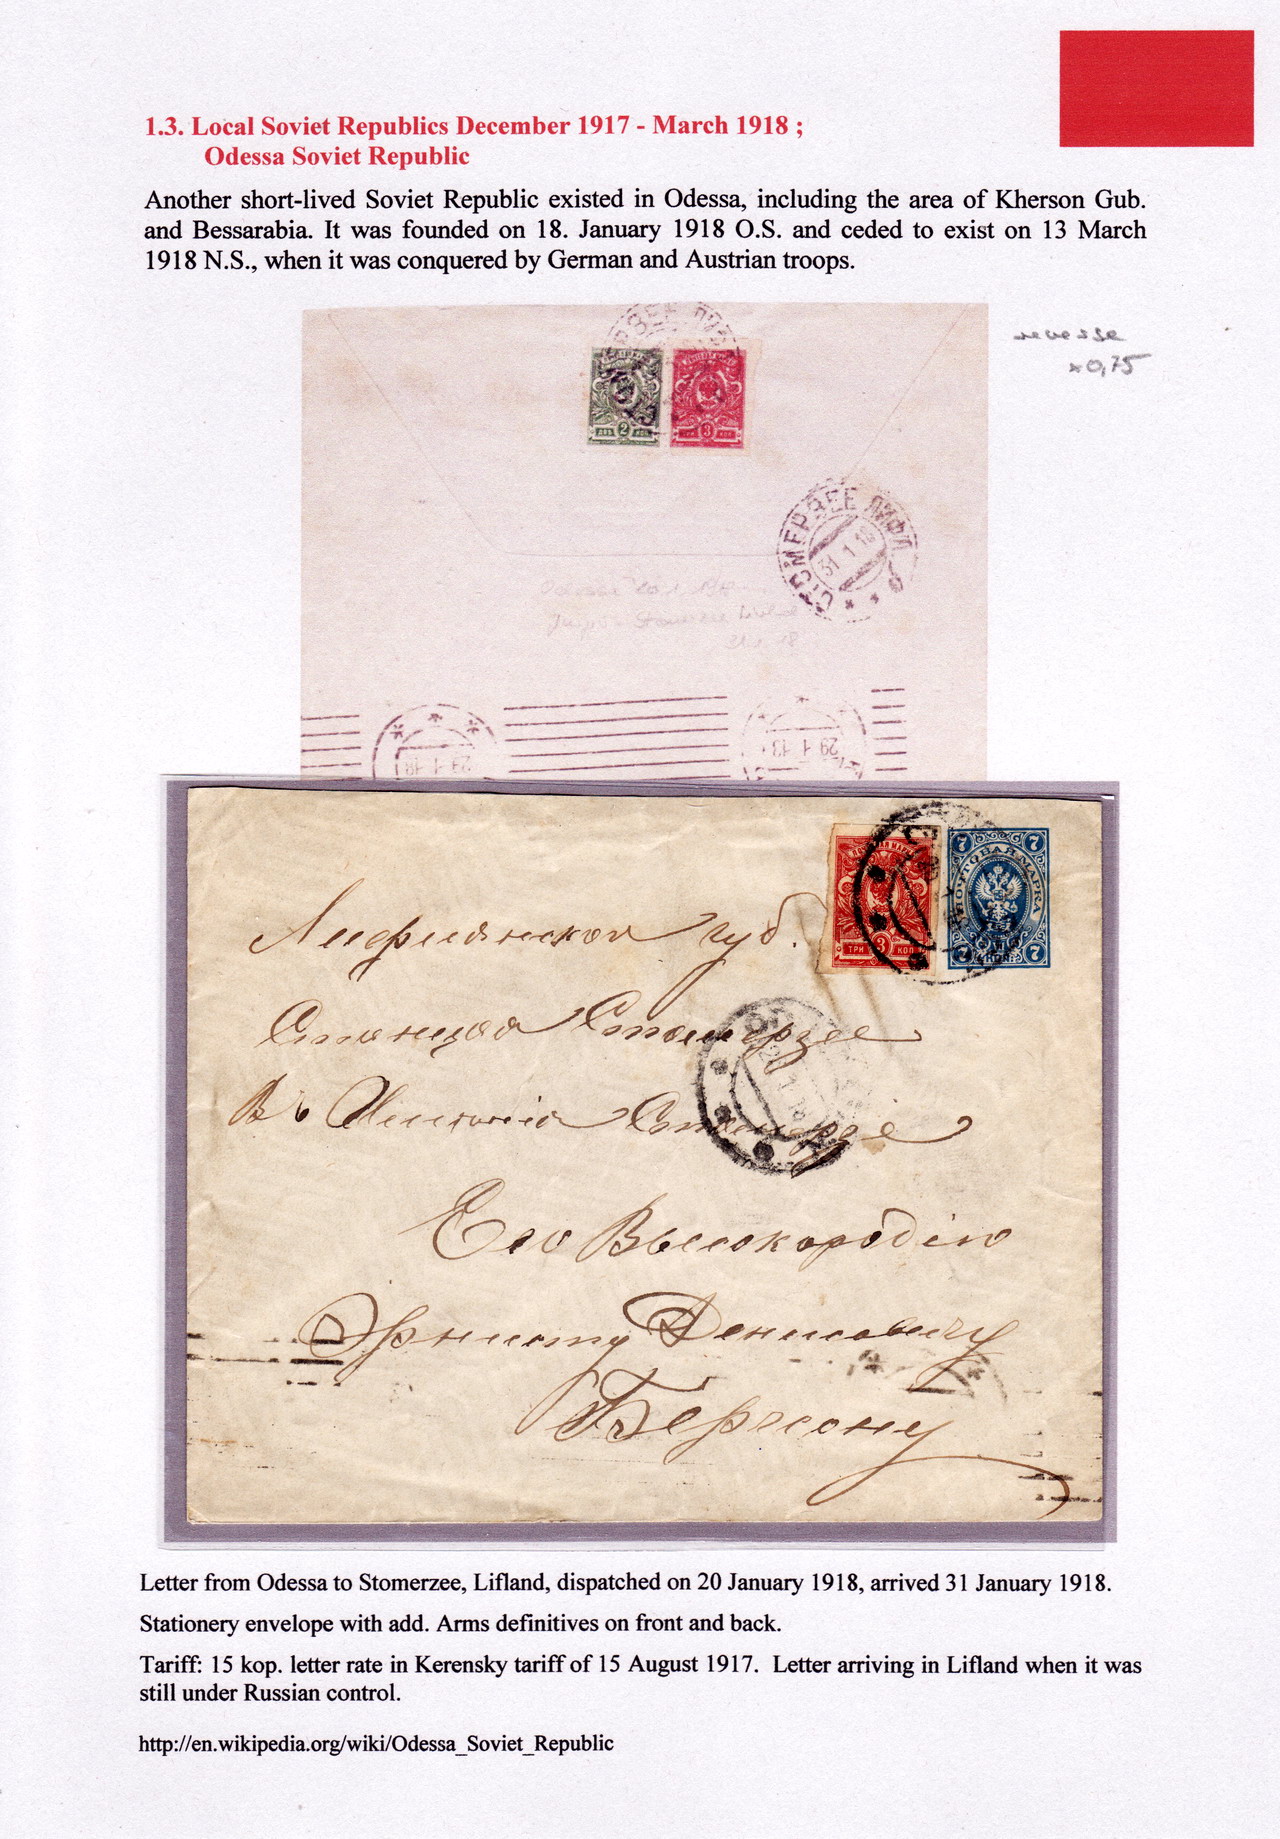 1.3. Local Soviet Republics December 1917 - March 1918 ;
Odessa Soviet Republic
Another short-lived Soviet Republic existed in Odessa, including the area of Kherson Gub.
and Bessarabia. It was founded on 18. January 1918 O.S. and ceded to exist on 13 March
1918 N.S., when it was conquered by German and Austrian troops.
reverse
x0,75
2
3
СТОМЕРЗЕЕ ЛИФЛ
31 1 18
Odessa 20 1
Stomerzee
29-1-18
ПОЧТОВАЯ МАРКА
7 7
3
ТРИ КОП
7 7
Лифлянская губ.
Станция Стомерзее
Въ Имѣніе Стомерзе
Его Высокородію
Эрнсту Денисовичу
Берсону
Letter from Odessa to Stomerzee, Lifland, dispatched on 20 January 1918, arrived 31 January 1918.
Stationery envelope with add. Arms definitives on front and back.
Tariff: 15 kop. letter rate in Kerensky tariff of 15 August 1917. Letter arriving in Lifland when it was
still under Russian control.
http://en.wikipedia.org/wiki/Odessa_Soviet_Republic